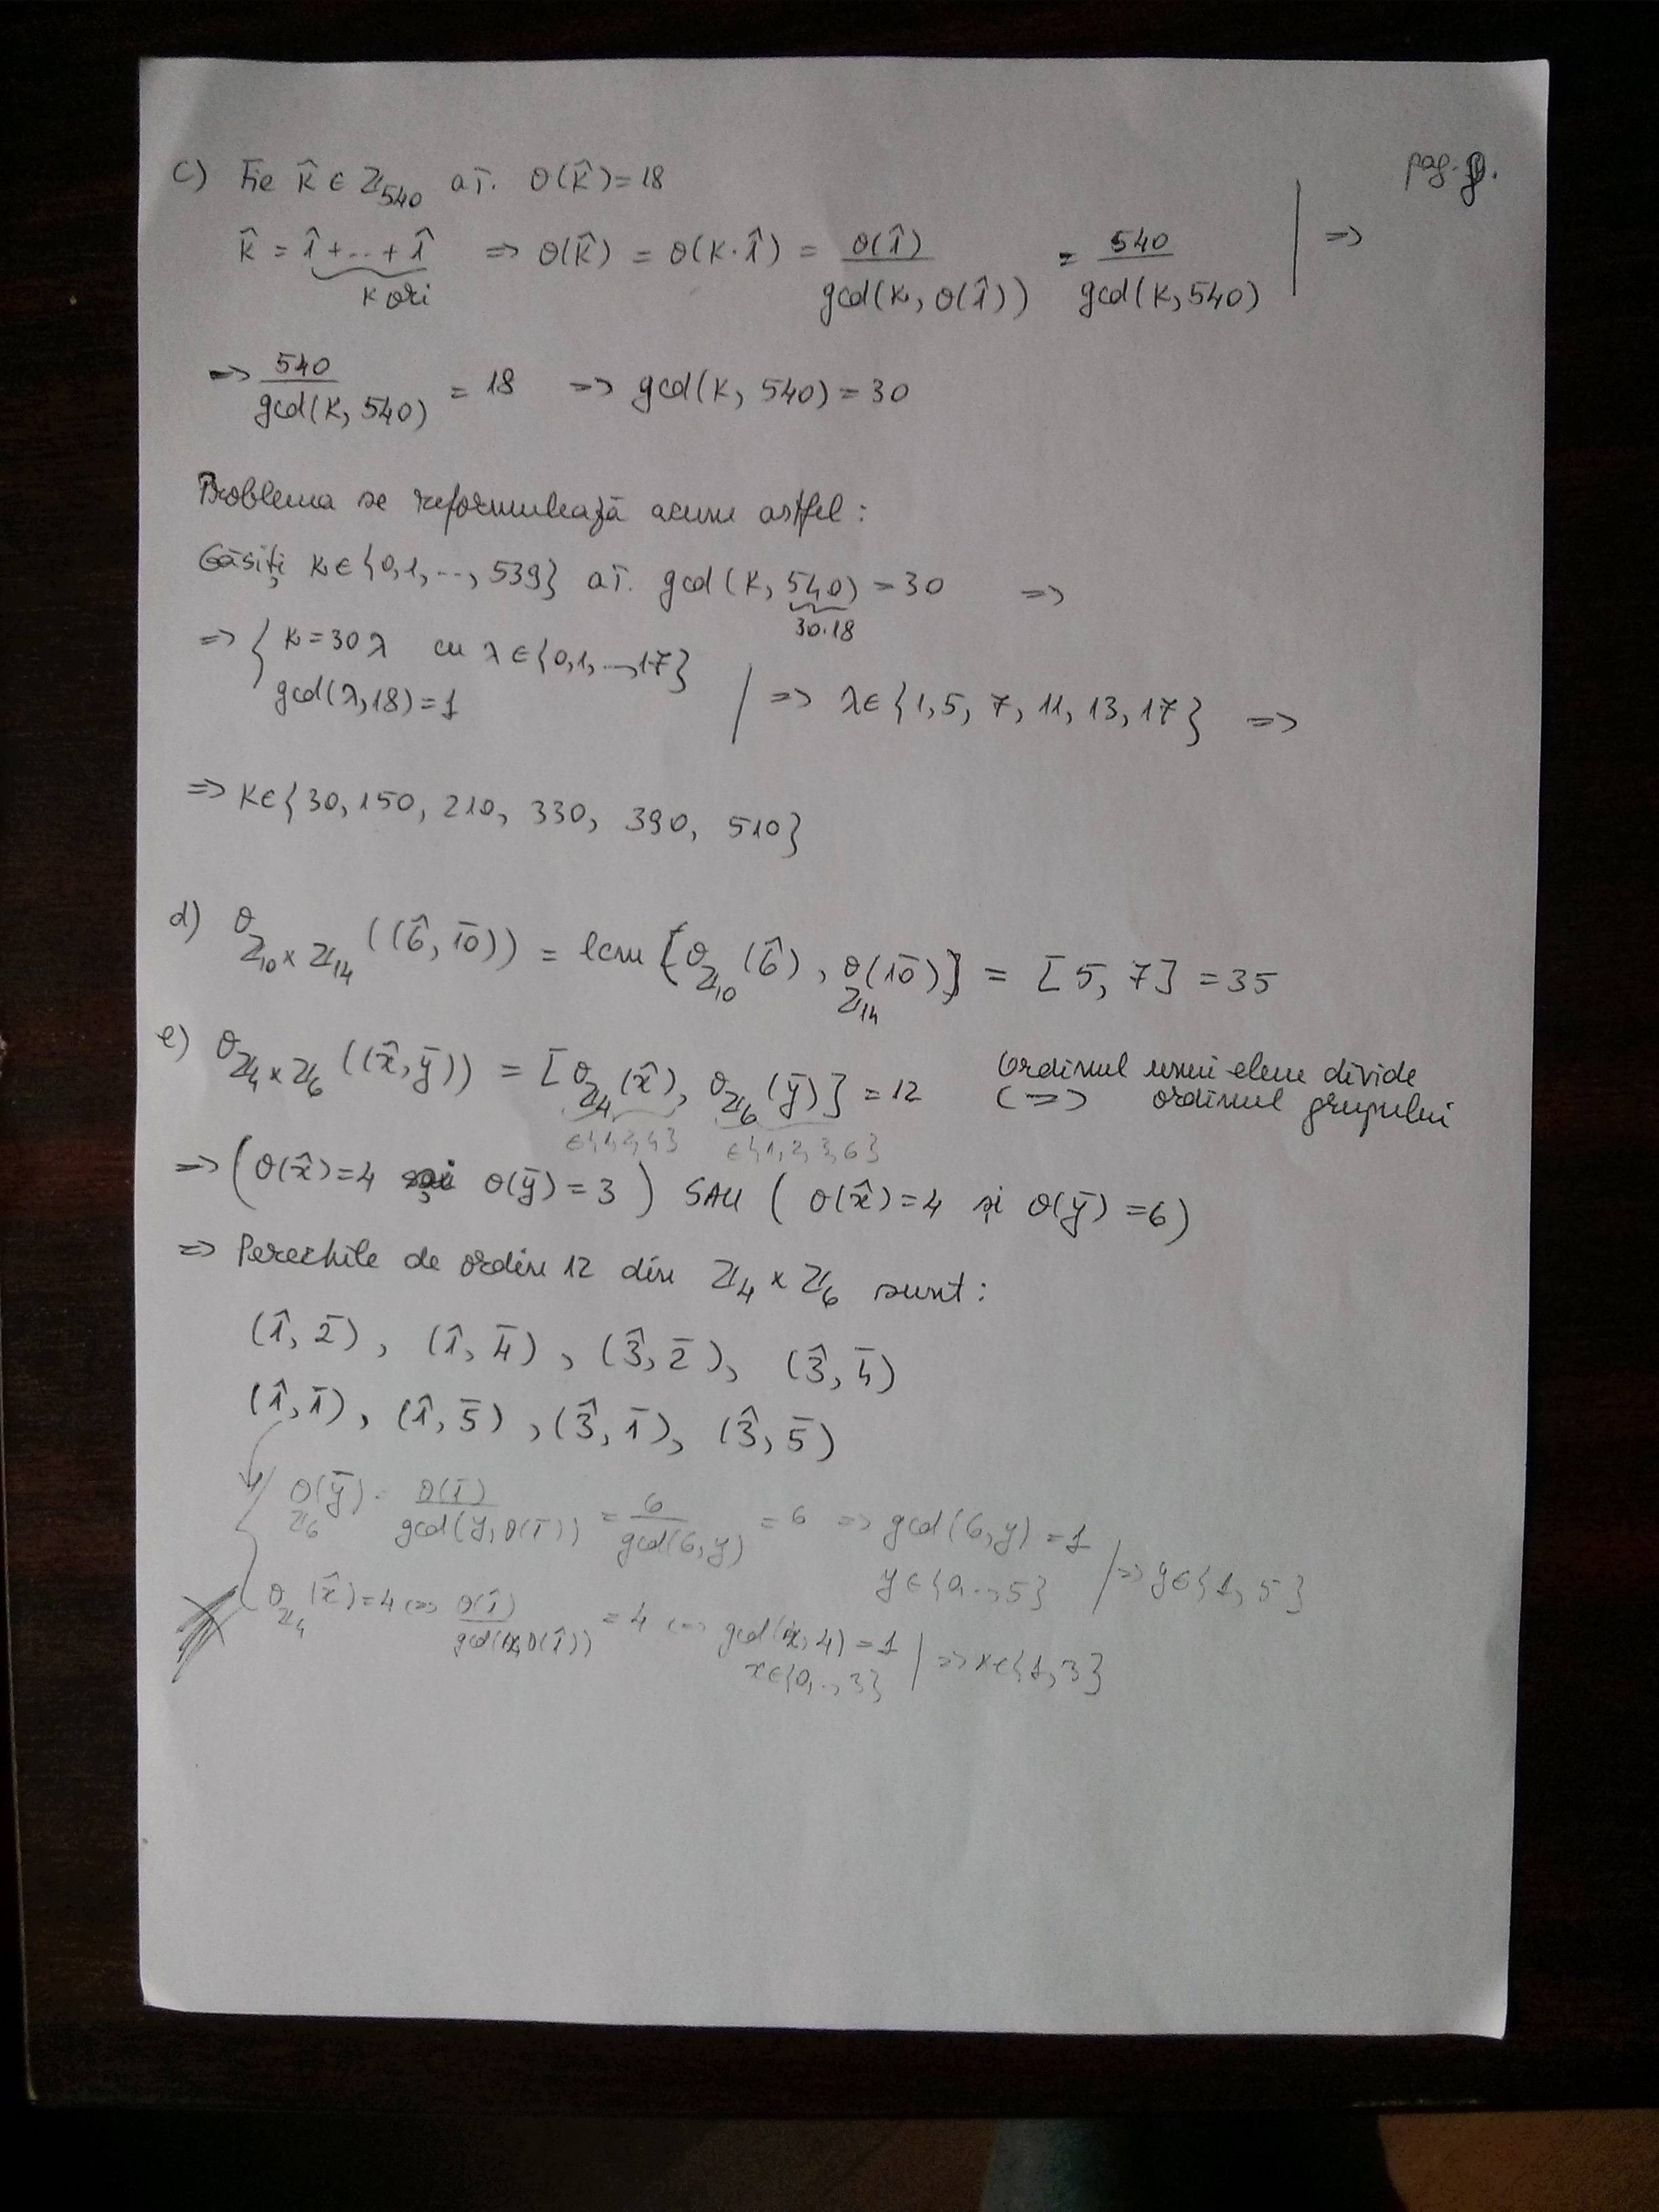 pag.
c) Fie k̂ ∈ ℤ₅₄₀ aî. θ(k̂) = 18
k̂ = 1̂ + ... + 1̂ => θ(k̂) = θ(k·1̂) = θ(1̂) / gcd(k, θ(1̂)) = 540 / gcd(k, 540) | =>
k ori
=> 540 / gcd(k, 540) = 18 => gcd(k, 540) = 30
Problema se reformulează acum astfel:
Găsiți k ∈ {0, 1, ..., 539} aî. gcd(k, 540) = 30 =>
30·18
=> { k = 30λ cu λ ∈ {0, 1, ..., 17}
gcd(λ, 18) = 1 | => λ ∈ {1, 5, 7, 11, 13, 17} =>
=> k ∈ {30, 150, 210, 330, 390, 510}
d) θ_ℤ₁₀×ℤ₁₄ ((6̂, 1̄0̄)) = lcm [θ_ℤ₁₀ (6̂), θ_ℤ₁₄ (1̄0̄)] = [5, 7] = 35
e) θ_ℤ₄×ℤ₆ ((x̂, ȳ)) = [θ_ℤ₄ (x̂), θ_ℤ₆ (ȳ)] = 12 <=>
Ordinul unui elem divide
ordinul grupului
∈{1,2,4} ∈{1,2,3,6}
=> (θ(x̂) = 4 și θ(ȳ) = 3) SAU (θ(x̂) = 4 și θ(ȳ) = 6)
=> Perechile de ordin 12 din ℤ₄ × ℤ₆ sunt:
(1̂, 2̄), (1̂, 4̄), (3̂, 2̄), (3̂, 4̄)
(1̂, 1̄), (1̂, 5̄), (3̂, 1̄), (3̂, 5̄)
θ_ℤ₆ (ȳ) = θ(1̄) / gcd(y, θ(1̄)) = 6 / gcd(6, y) = 6 => gcd(6, y) = 1
y ∈ {0, ..., 5} | => y ∈ {1, 5}
θ_ℤ₄ (x̂) = 4 <=> θ(1̂) / gcd(x, θ(1̂)) = 4 <=> gcd(x, 4) = 1
x ∈ {0, .., 3} | => x ∈ {1, 3}